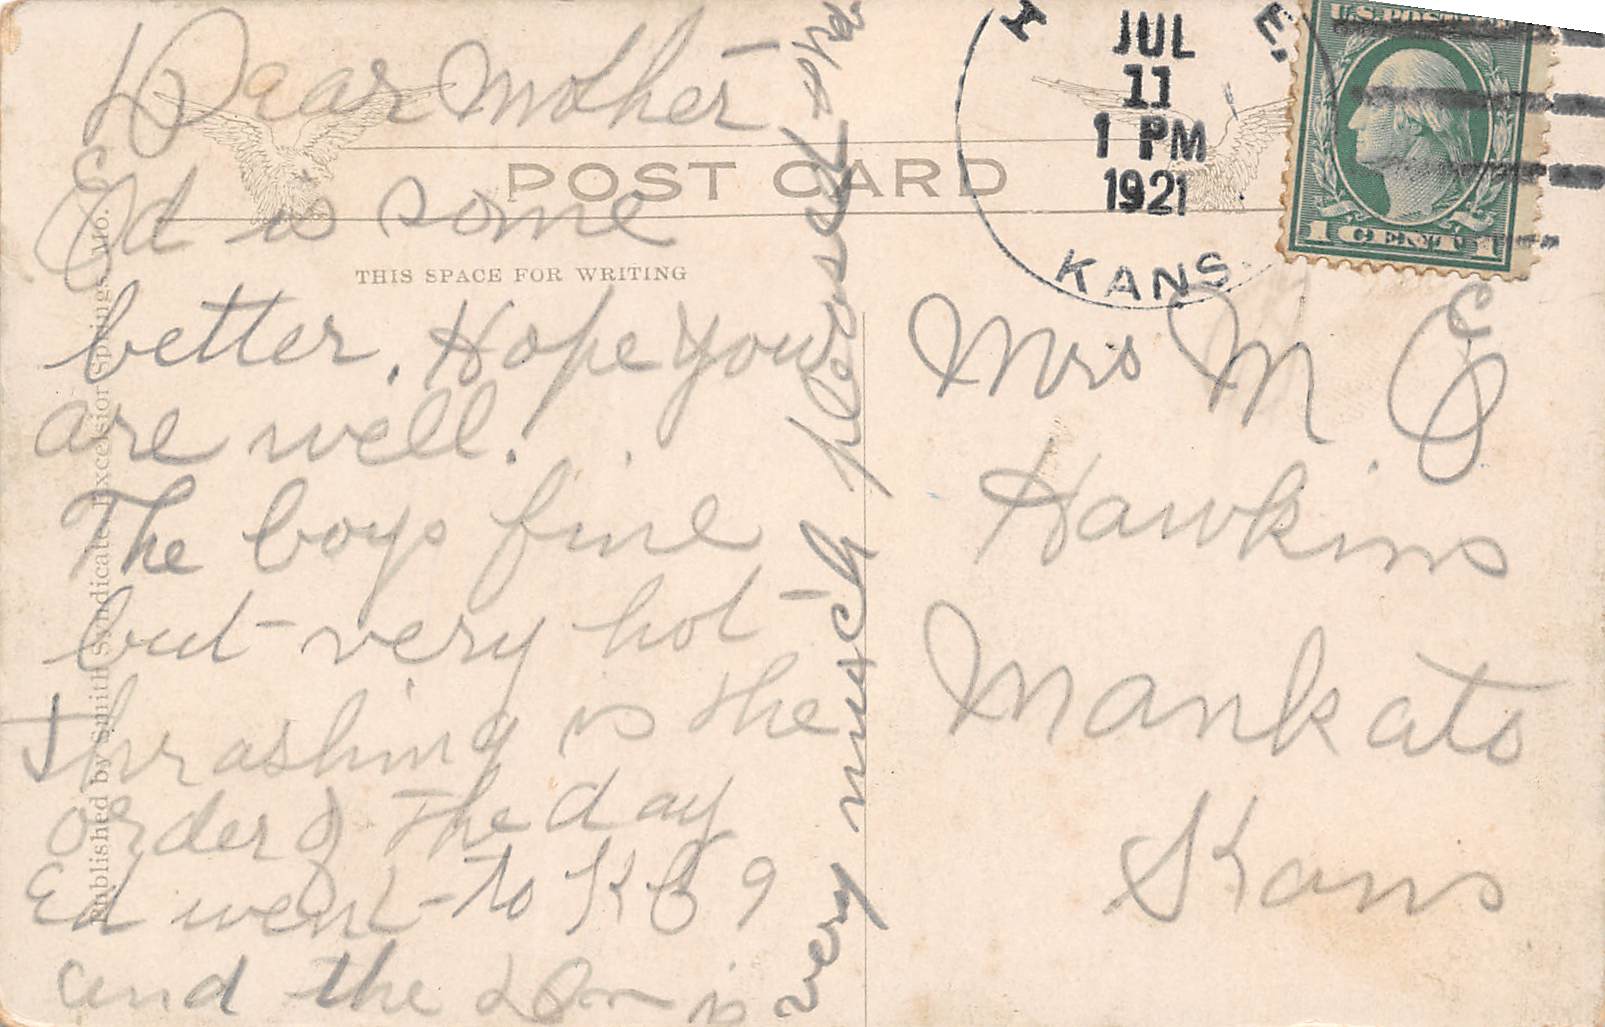 Dear Mother
Ed is some
better. Hope you
are well.
The boys fine
but very hot
Thrashing is the
order of the day
Ed went to K C 9
and the Dr is
very much pleased
POST CARD
THIS SPACE FOR WRITING
Published by Smith Syndicate, Excelsior Springs, Mo.
JUL
11
1 PM
1921
KANS.
U.S. POSTAGE
1 CENT 1
Mrs M E
Hawkins
Mankato
Kans